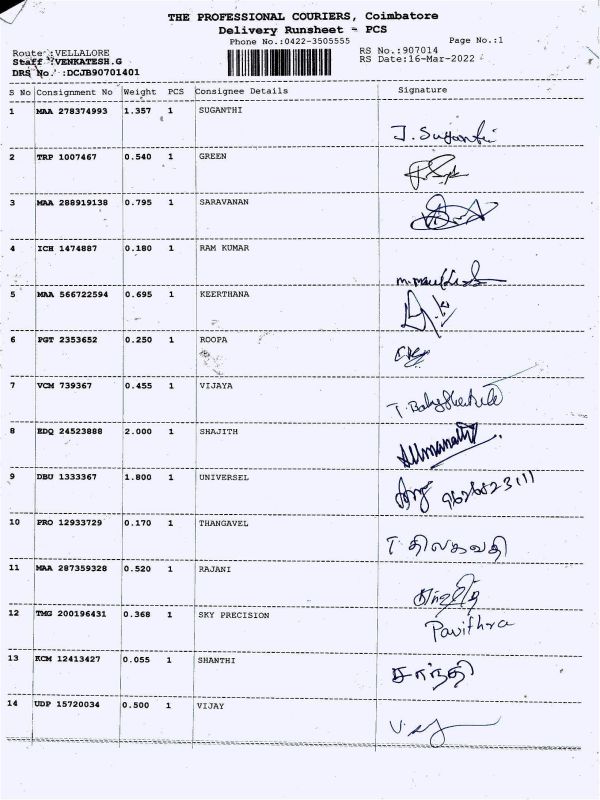 THE PROFESSIONAL COURIERS, Coimbatore
Delivery Runsheet - PCS
Phone No.:0422-3505555 Page No.:1
Route :VELLALORE RS No.:907014
Staff :VENKATESH.G RS Date:16-Mar-2022
DRS No. :DCJB90701401
S No Consignment No Weight PCS Consignee Details Signature
1 MAA 278374993 1.357 1 SUGANTHI
J. Suganthi
2 TRP 1007467 0.540 1 GREEN
3 MAA 288919138 0.795 1 SARAVANAN
4 ICH 1474887 0.180 1 RAM KUMAR
5 MAA 566722594 0.695 1 KEERTHANA
6 PGT 2353652 0.250 1 ROOPA
7 VCM 739367 0.455 1 VIJAYA
8 EDQ 24523888 2.000 1 SHAJITH
9 DBU 1333367 1.800 1 UNIVERSEL
10 PRO 12933729 0.170 1 THANGAVEL
T திலகவதி
11 MAA 287359328 0.520 1 RAJANI
12 TMG 200196431 0.368 1 SKY PRECISION
Pavithra
13 KCM 12413427 0.055 1 SHANTHI
சாந்தி
14 UDP 15720034 0.500 1 VIJAY